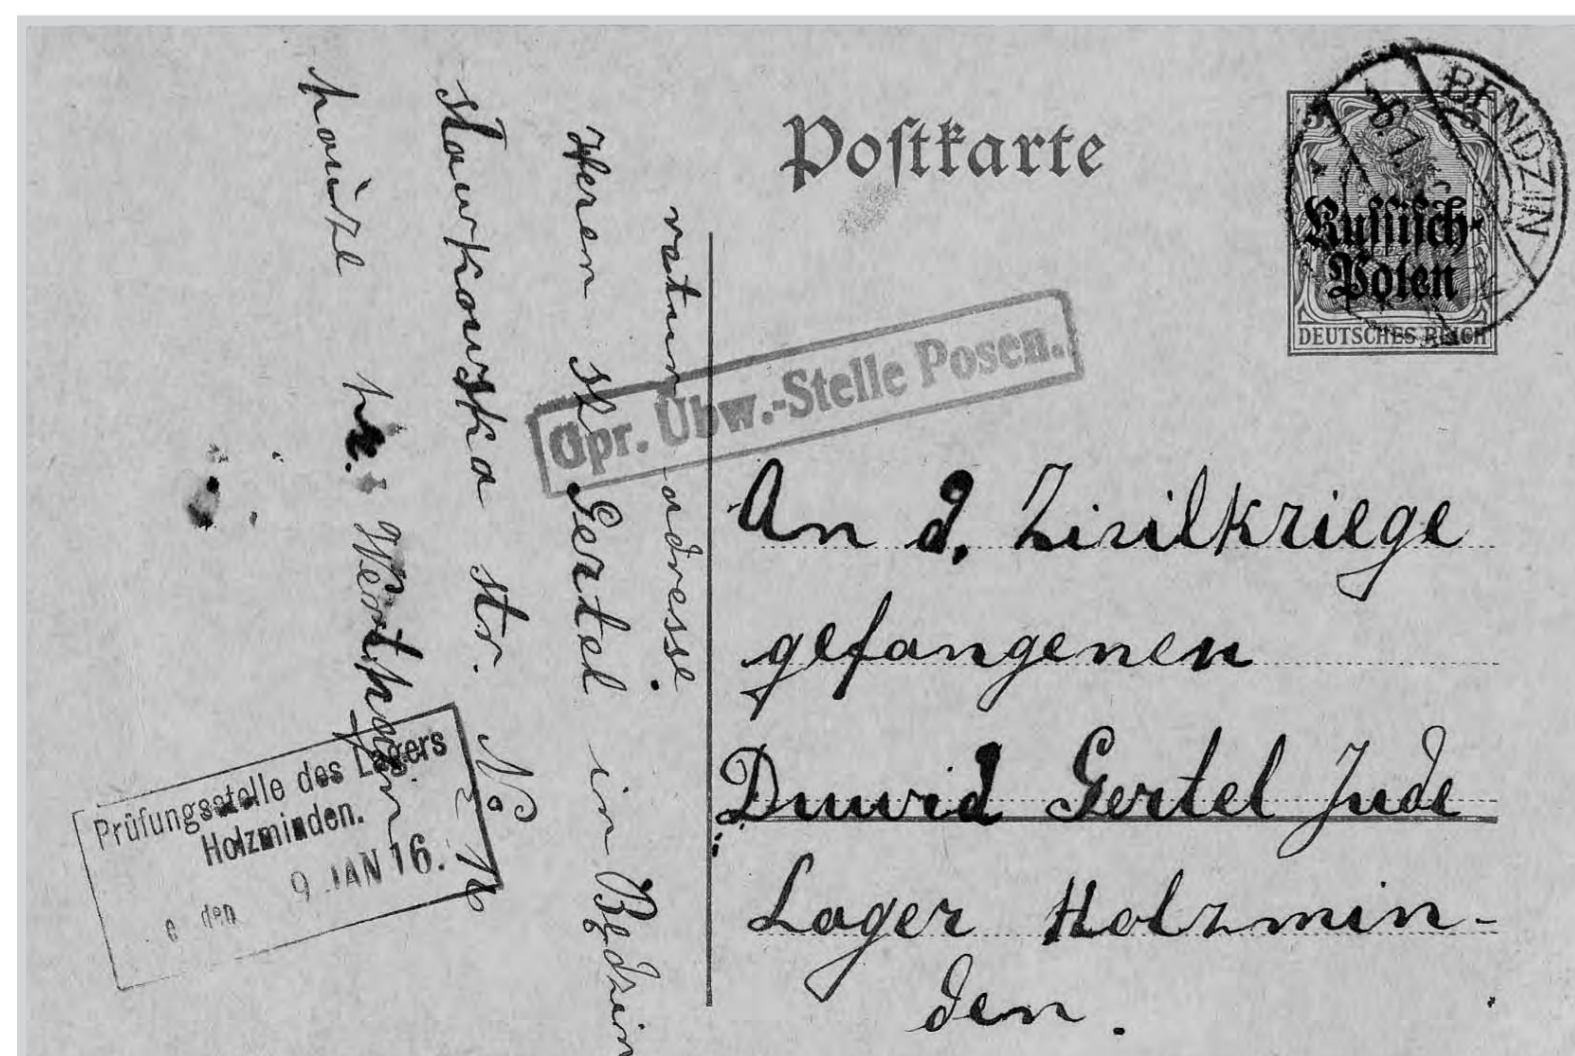 Postkarte
BENDZIN
5 5
Russisch-
Polen
DEUTSCHES REICH
Gpr. Übw.-Stelle Posen.
An d. Zivilkriege
gefangenen
Duwid Gertel Jude
Lager Holzmin-
den.
retur adresse
Heren Sz Gertel in Będzin
Slawkowska str. No
hauze
Werthajm
Prüfungsstelle des Lagers
Holzminden.
9 JAN 16.
e den